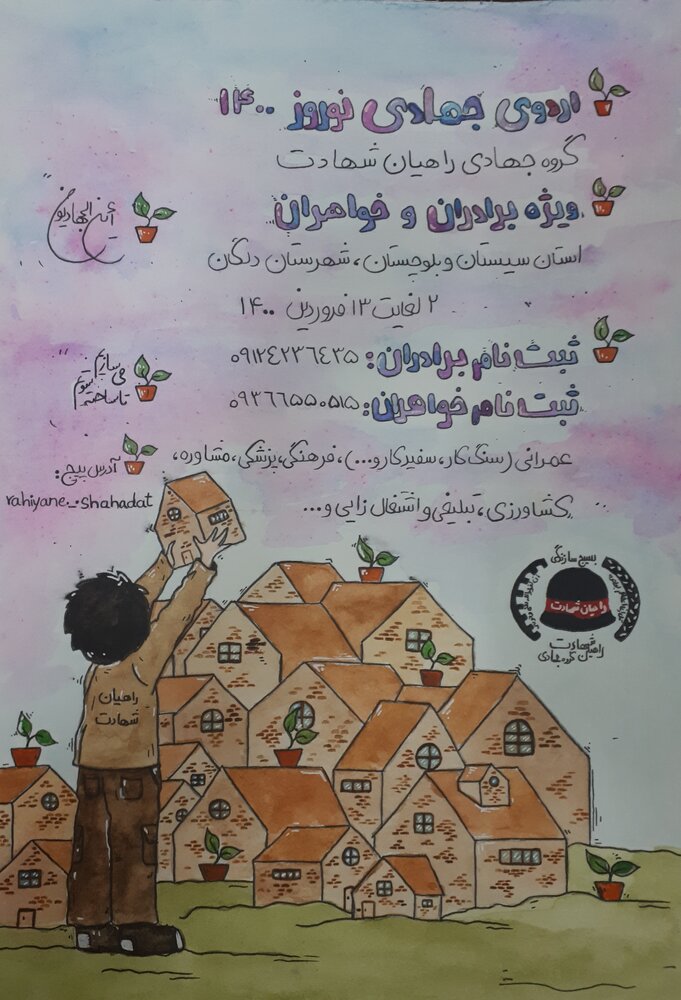 اردوی جهادی نوروز ۱۴۰۰
گروه جهادی راهیان شهادت
ویژه برادران و خواهران
أین الرجبیون
استان سیستان و بلوچستان، شهرستان دلگان
۲ لغایت ۱۳ فروردین ۱۴۰۰
ثبت نام برادران: ۰۹۱۲۴۲۳۶۴۳۵
ثبت نام خواهران: ۰۹۳۶۶۵۵۰۵۱۵
می سازیم
تا ساخته شویم
عمرانی (سنگ کار، سفیدکار و...)، فرهنگی، پزشکی، مشاوره،
کشاورزی، تبلیغی و اشتغال زایی و...
آدرس پیج:
rahiyane_.shahadat
بسیج سازندگی
راهیان شهادت
گروه جهادی
راهیان شهادت
راهیان
شهادت